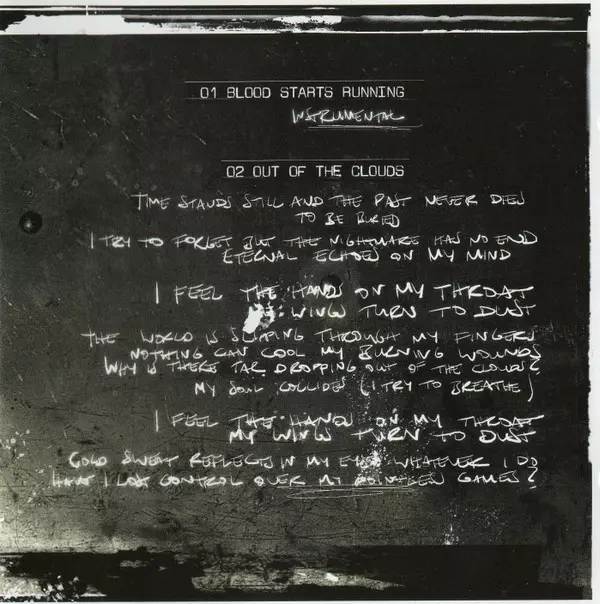 01 BLOOD STARTS RUNNING
INSTRUMENTAL
02 OUT OF THE CLOUDS
TIME STANDS STILL AND THE PAST NEVER DIES
TO BE BURIED
I TRY TO FORGET BUT THE NIGHTMARE HAS NO END
ETERNAL ECHOES ON MY MIND
I FEEL THE HANDS ON MY THROAT
WINGS TURN TO DUST
THE WORLD IS SLIPPING THROUGH MY FINGERS
NOTHING CAN COOL MY BURNING WOUNDS
WHY IS THERE TAR DROPPING OUT OF THE CLOUDS?
MY SOUL COLLIDES (I TRY TO BREATHE)
I FEEL THE HANDS ON MY THROAT
MY WINGS TURN TO DUST
COLD SWEAT REFLECTS IN MY EYES WHATEVER I DO
HAVE I LOST CONTROL OVER MY POINTLESS GAMES?